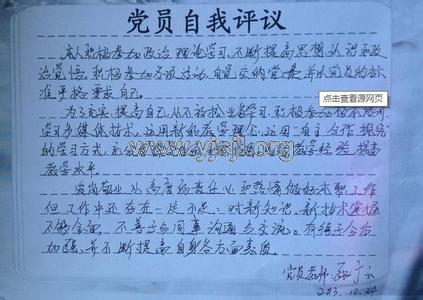 党员自我评议
本人积极参加政治理论学习,不断提高思想认识和政
治觉悟。积极参加各项活动,自觉交纳党费,并以党员的标
准严格要求自己。
点击查看源网页
为了充实、提高自己,从不放松业务学习,积极参加
学习多媒体技术,运用新的教学理念,运用"自主合作探究
的学习方式,
教学经验,提高
教学水平。
www.yjsjl.org
爱岗敬业,以高度的责任心和热情做好本职工作
但工作中还存在一定不足:对新知识、新技术掌握
不够全面,不善于与同事沟通与交流。有待于今后
加强,并不断提高自身各方面素质。
党员教师:
10.24